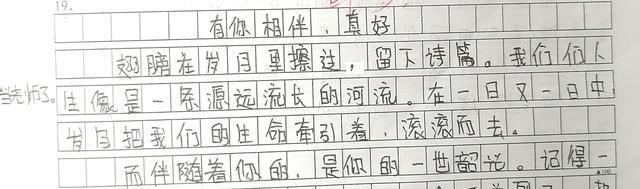 19.
有你相伴，真好
翅膀在岁月里擦过，留下诗篇。我们们人
生像是一条源远流长的河流。在一日又一日中
岁月把我们的生命牵引着，滚滚而去。
而伴随着你的，是你的一世韶光。记得一